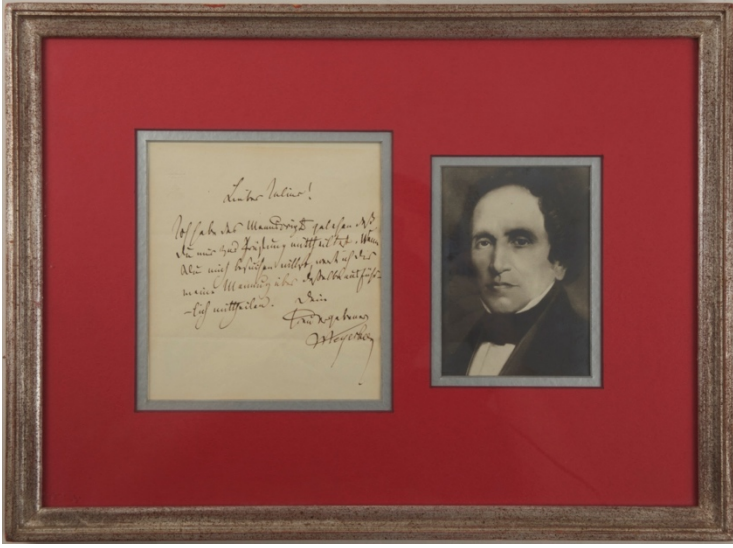 Lieber Julius!
Ich habe das Manuscript gelesen daß
Du mir zur Prüfung mittheiltest. Wenn
Du mich besuchen willst, werde ich Dir
meine Meinung über dasselbe ausführ-
lich mittheilen. Dein
ergebener
Meyerbeer